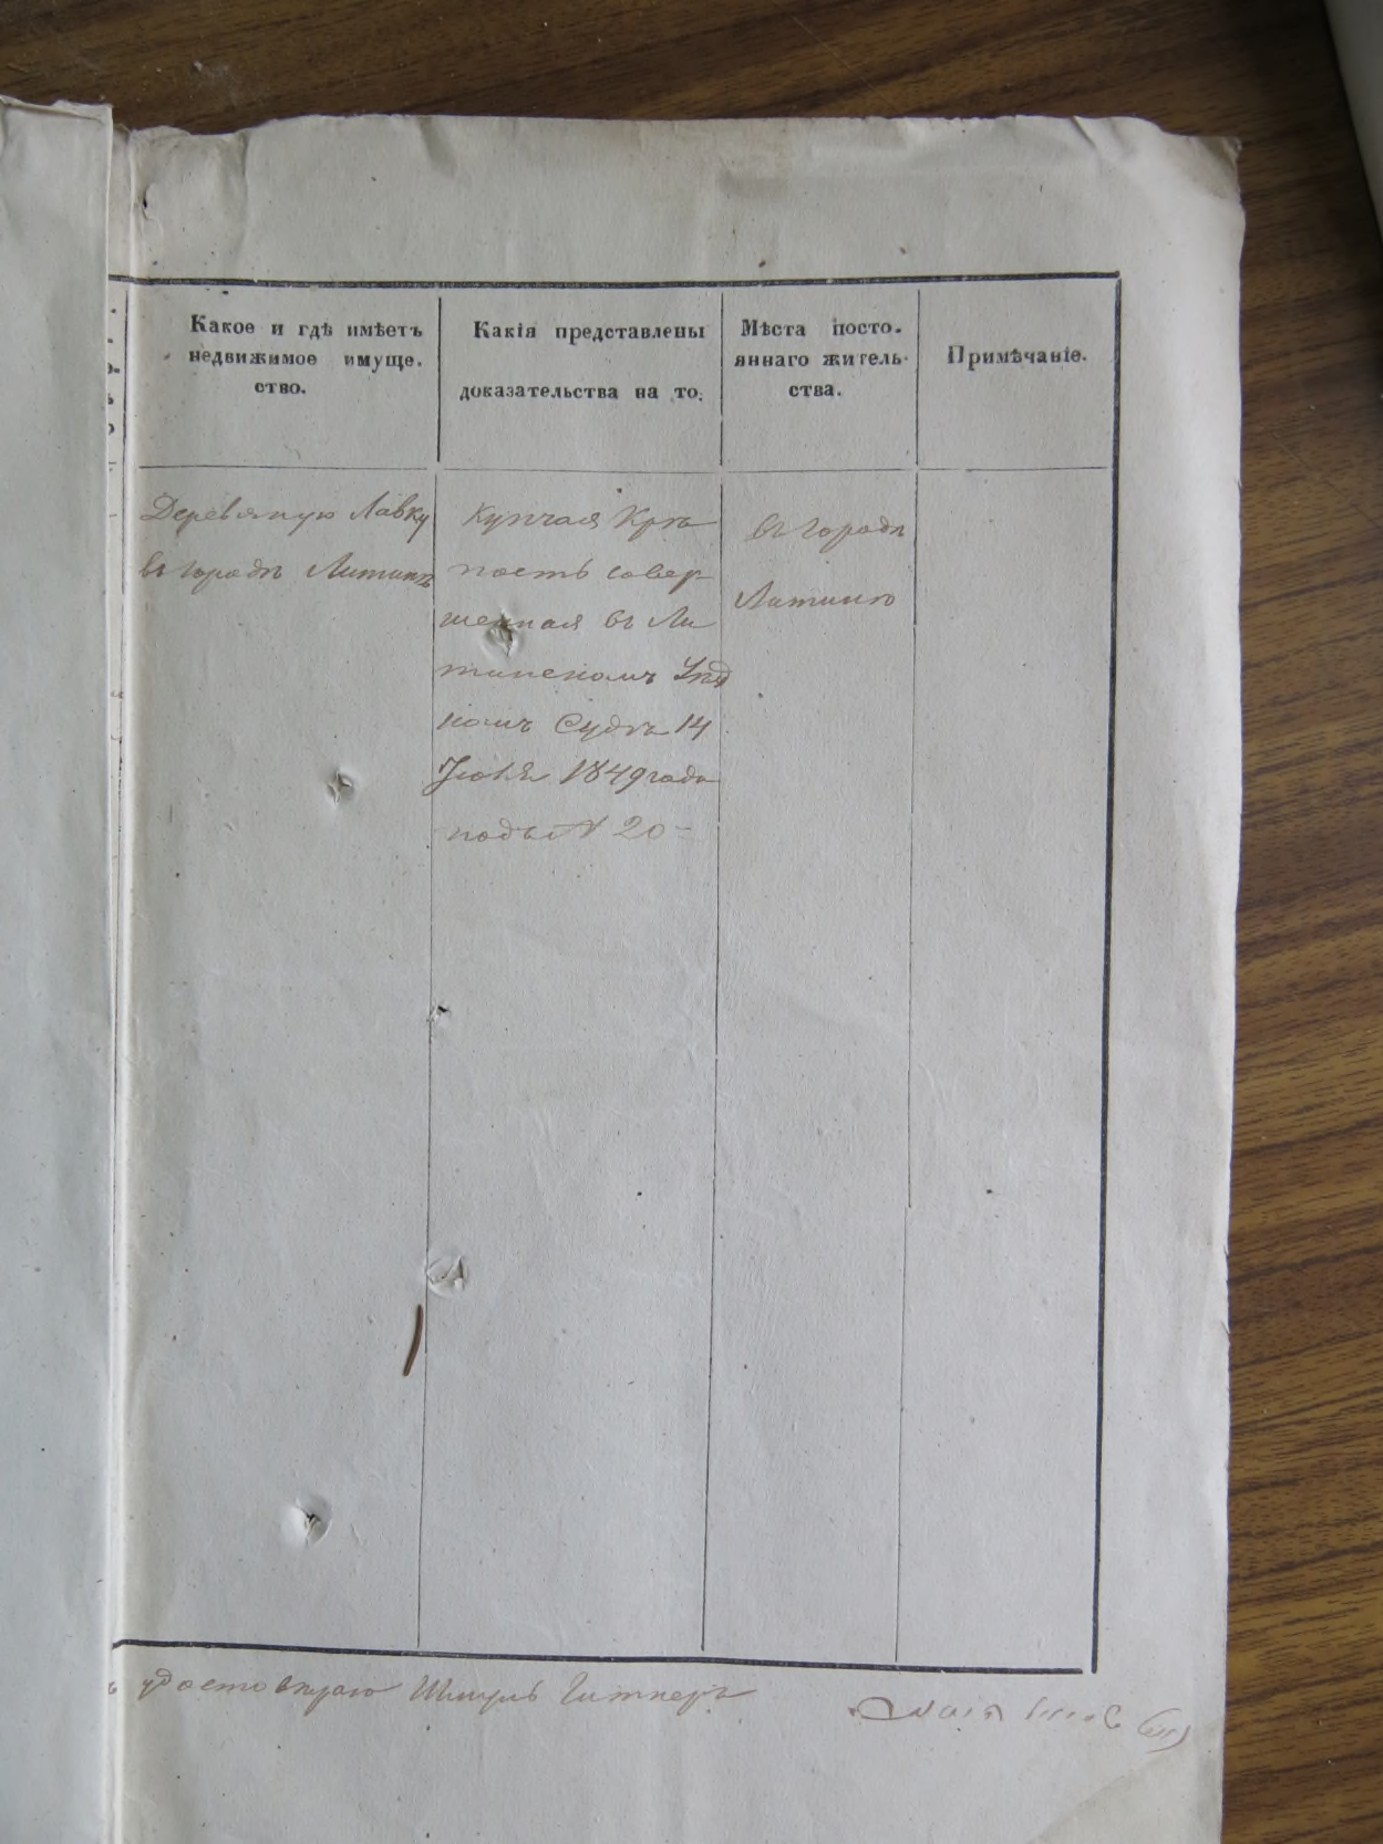 Какое и гдѣ имѣетъ
недвижимое имуще-
ство.
Какія представлены
доказательства на то.
Мѣста посто-
яннаго житель-
ства.
Примѣчаніе.
Деревяную Лавку
въ городѣ Литинѣ
Купчая Крѣ
пость совер
шенная въ Ли
тинскомъ Уѣзд
номъ Судѣ 14
Іюня 1849 года
подъ № 20
въ городѣ
Литинѣ
удостовѣряю Шмуль Гитнеръ